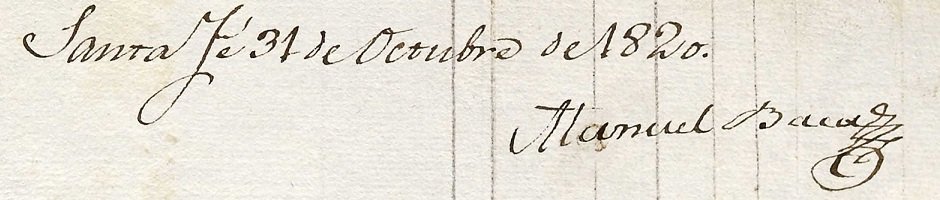 Santa Fé 31 de Octubre de 1820.
Manuel Baca